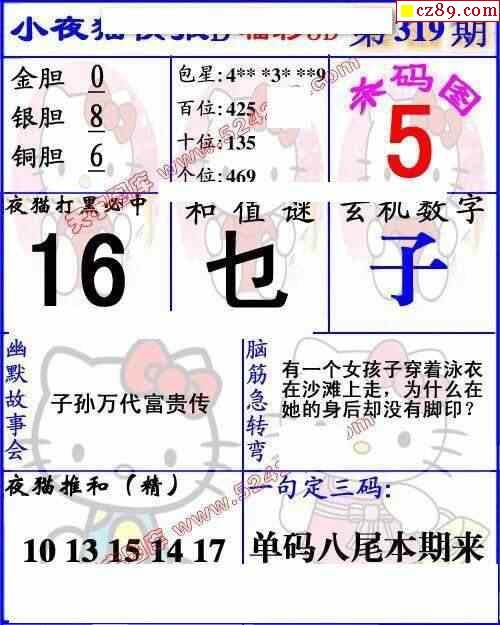 cz89.com
小夜猫 第319期
金胆 0
银胆 8
铜胆 6
包星:4** *3* **9
百位:425
十位:135
个位:469
杀码图
5
夜猫打黑必中
16
和值谜
乜
玄机数字
子
幽默故事会
子孙万代富贵传
脑筋急转弯
有一个女孩子穿着泳衣
在沙滩上走,为什么在
她的身后却没有脚印?
夜猫推和(精)
10 13 15 14 17
一句定三码:
单码八尾本期来